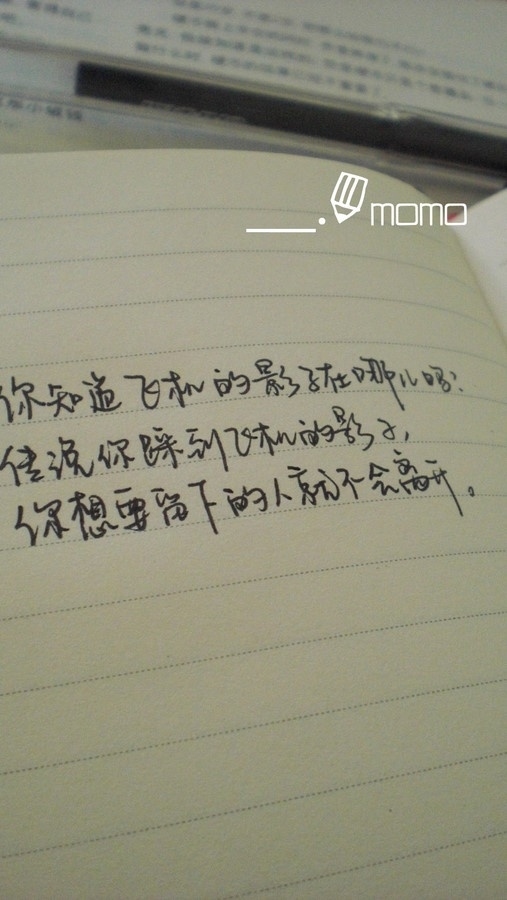 momo
你知道飞机的影子在哪儿吗?
传说你踩到飞机的影子,
你想要留下的人就不会离开。